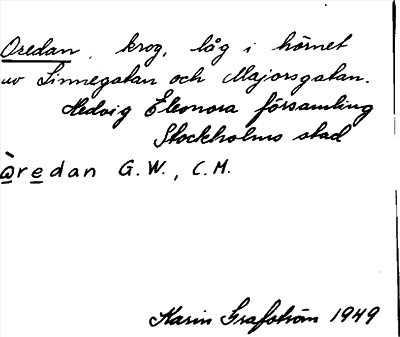 Oredan, krog, låg i hörnet
av Linnegatan och Majorsgatan.
Hedvig Eleonora församling
Stockholms stad
òredan G. W., C. M.
Karin Grafström 1949